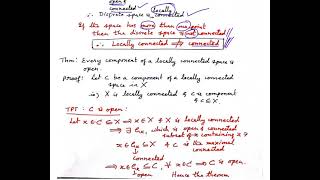 open &
connected Locally
∴ Discrete space is connected
If the space has more than one point
then the discrete space is not connected
∴ Locally connected ⇏ connected
Thm: Every component of a locally connected space is
open.
Proof: Let C be a component of a locally connected
space in X
i.e) X is locally connected & C is component
& C ⊆ X.
TPT: C is open:
Let x ∈ C ⊆ X ⇒ x ∈ X & X is locally connected
⇒ ∃ Gx, which is open & connected
subset of X containing x
⇒ x ∈ Gx ⊆ X & C is the maximal
connected connected
⇒ x ∈ Gx ⊆ C, ∀ x ∈ C ⇒ C is open.
open Hence the theorem